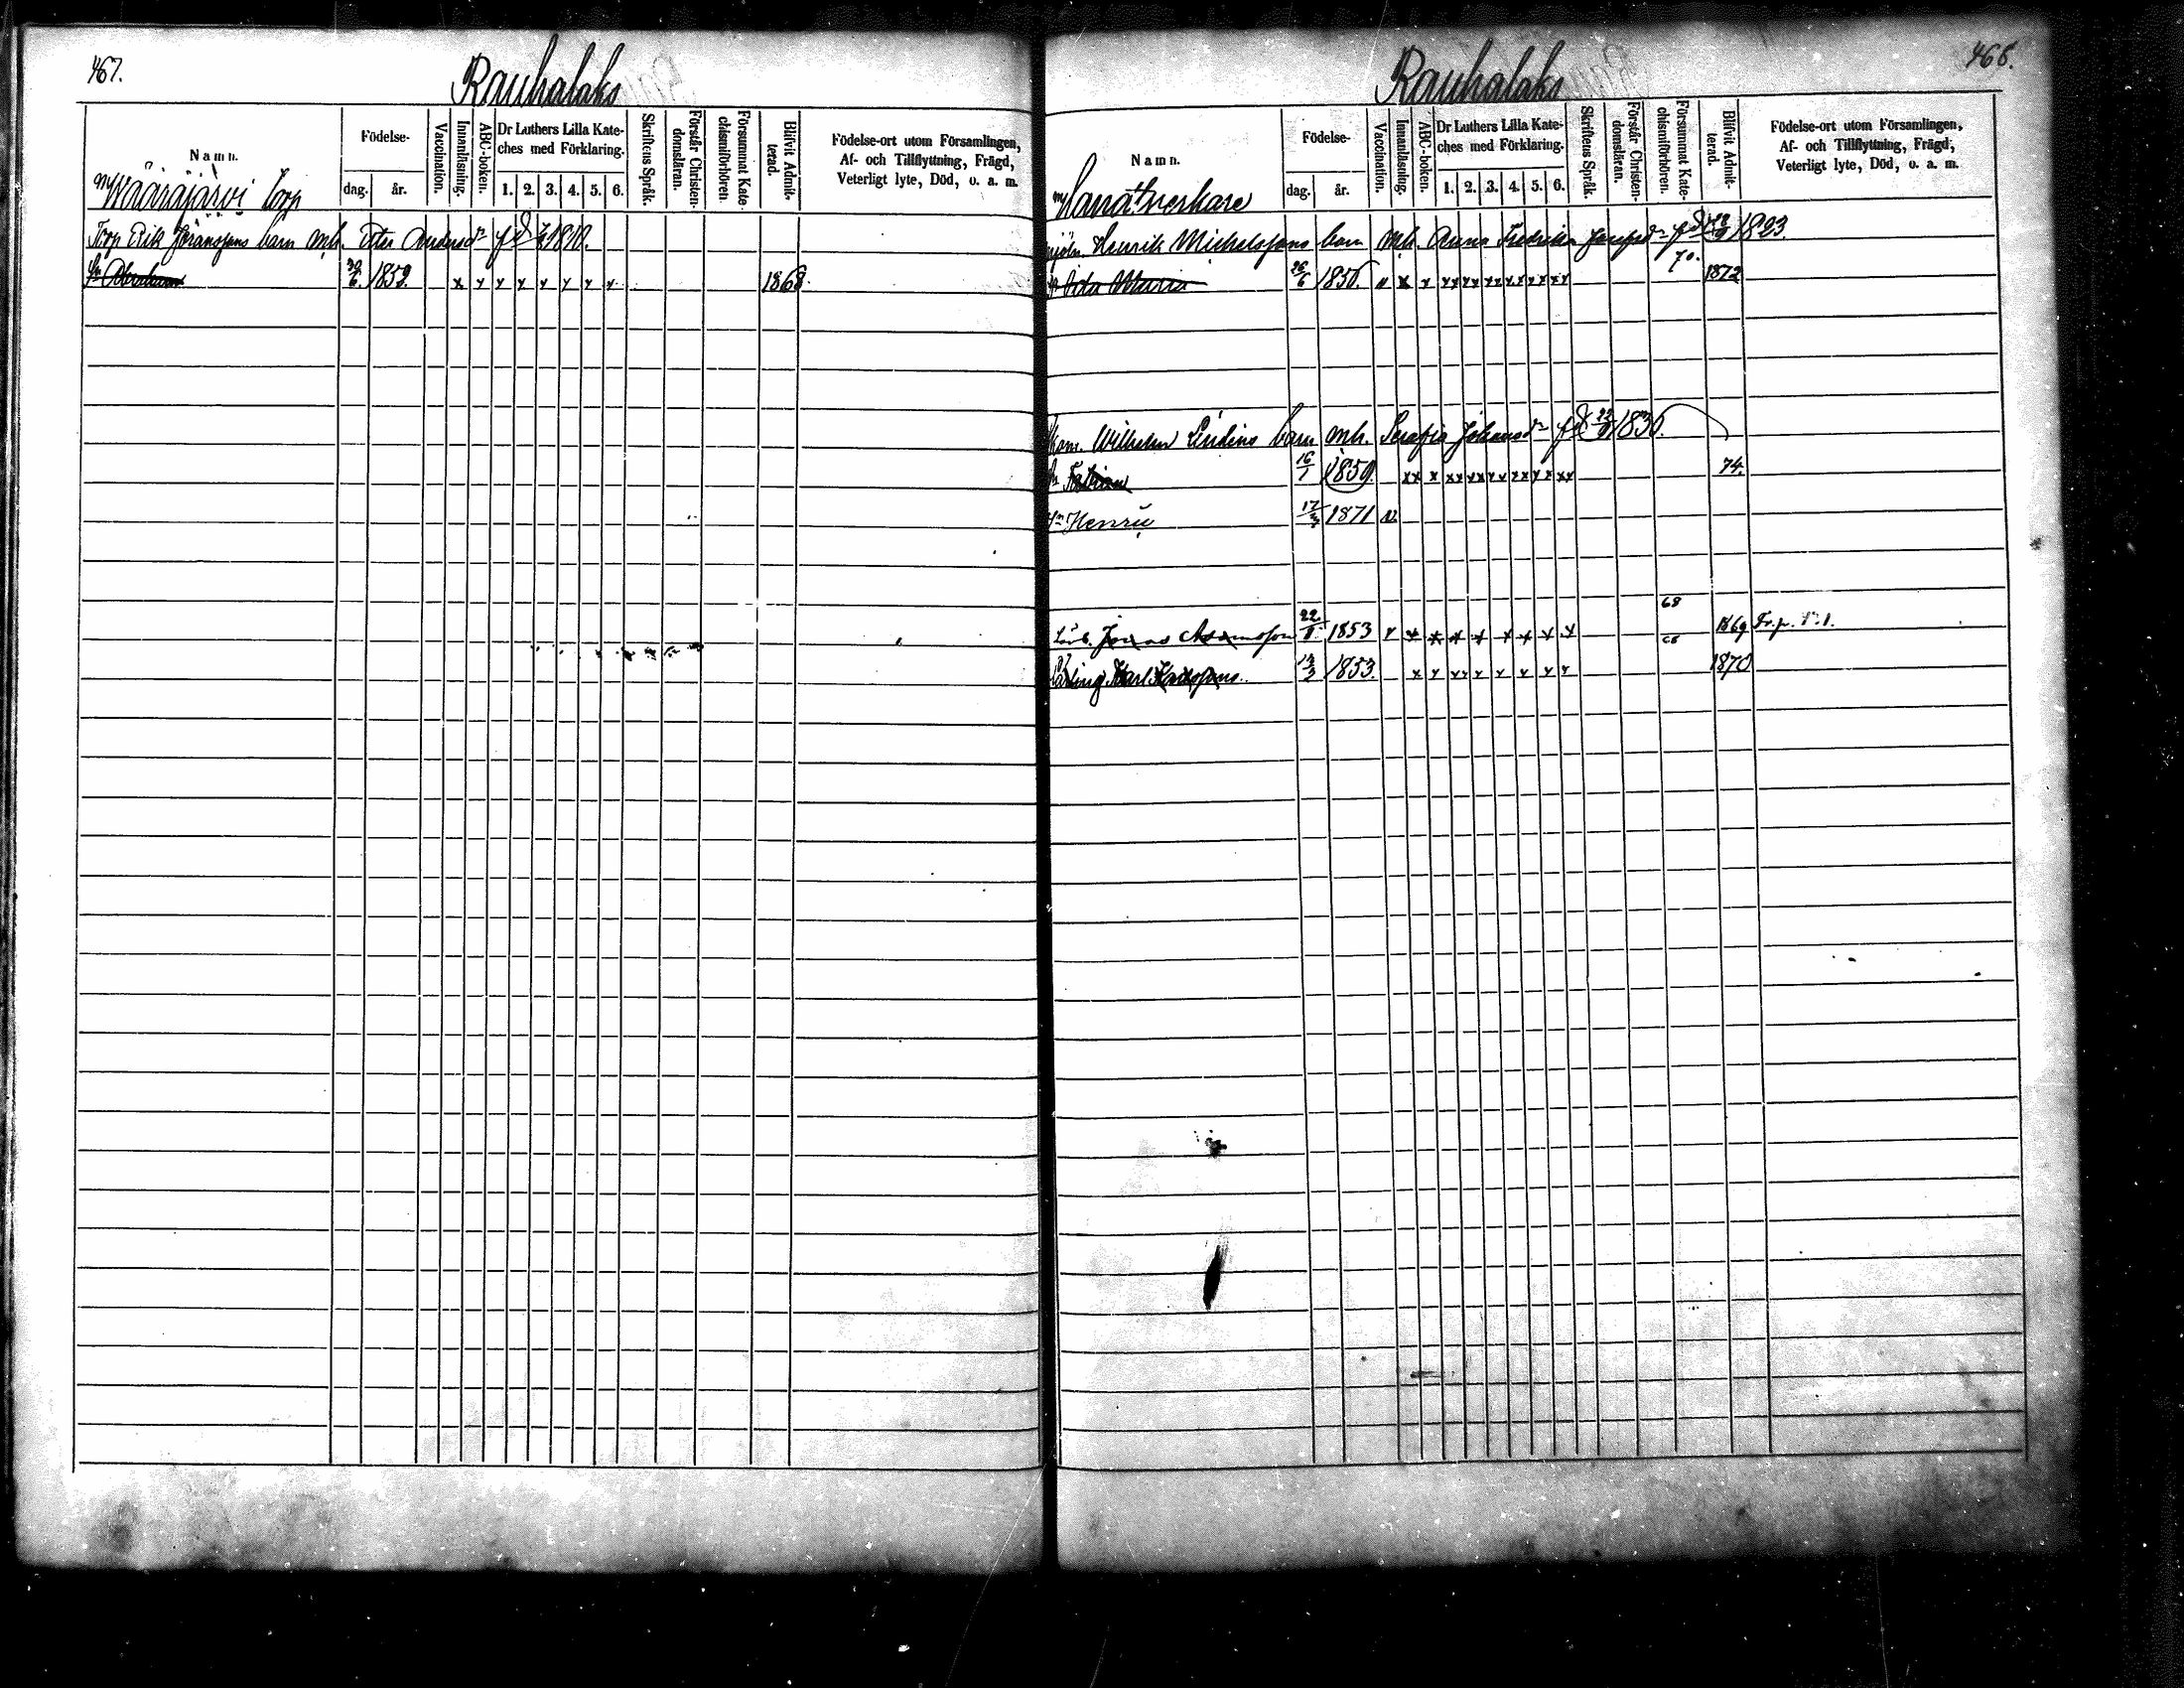 467.
Rauhalaks
Namn.
Födelse-
dag. år.
Vaccination.
Innanläsning.
ABC-boken.
Dr Luthers Lilla Kate-
ches med Förklaring.
1. 2. 3. 4. 5. 6.
Skriftens Språk.
Förstår Christen-
domsläran.
Försummat Kate-
chismiförhören.
Blifvit Admit-
terad.
Födelse-ort utom Församlingen,
Af- och Tillflyttning, Frägd,
Veterligt lyte, Död, o. a. m.
Wäärajärvi Torp
Torp Erik Jöranssons barn mh. Andersdr fd 1810.
Sn Abraham 30/6 1852. x x x x x x x x 1868.
468.
Rauhalaks
Namn.
Födelse-
dag. år.
Vaccination.
Innanläsning.
ABC-boken.
Dr Luthers Lilla Kate-
ches med Förklaring.
1. 2. 3. 4. 5. 6.
Skriftens Språk.
Förstår Christen-
domsläran.
Försummat Kate-
chismiförhören.
Blifvit Admit-
terad.
Födelse-ort utom Församlingen,
Af- och Tillflyttning, Frägd,
Veterligt lyte, Död, o. a. m.
Handtverkare
Henrik Michelssons barn mh. Anna Fredrika Josefsdr fd 1823.
70.
Ida Maria 26/6 1856. 1872
Wilhelm Lindins barn mh. Serafia Johansdr fd 1836.
Fabian 16/1 1859. 74.
Sn Henric 17 1871 v.
68
Jonas Adamsson 22 1853 1869 Fr.p.
Karl Karlssons 1853. 1870